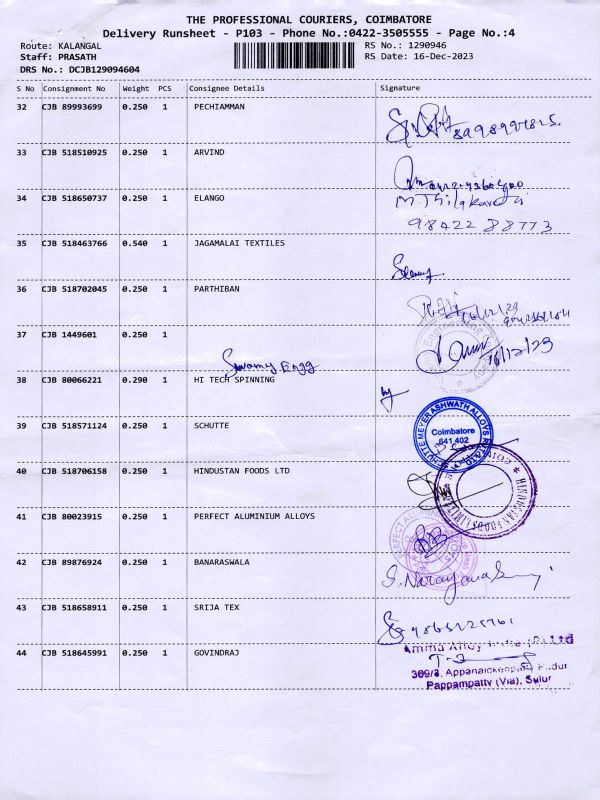 THE PROFESSIONAL COURIERS, COIMBATORE
Delivery Runsheet - P103 - Phone No.:0422-3505555 - Page No.:4
Route: KALANGAL
RS No.: 1290946
Staff: PRASATH
RS Date: 16-Dec-2023
DRS No.: DCJB129094604
S No Consignment No Weight PCS Consignee Details Signature
32 CJB 89993699 0.250 1 PECHIAMMAN
33 CJB 518510925 0.250 1 ARVIND
34 CJB 518650737 0.250 1 ELANGO
M.Thilakavathi
98422 88773
35 CJB 518463766 0.540 1 JAGAMALAI TEXTILES
36 CJB 518702045 0.250 1 PARTHIBAN
37 CJB 1449601 0.250 1
Swamy Engg
16/12/23
38 CJB 80066221 0.290 1 HI TECH SPINNING
39 CJB 518571124 0.250 1 SCHUTTE
SCHUTTE MEYER ASHWATH ALLOYS
Coimbatore
641 402
40 CJB 518706158 0.250 1 HINDUSTAN FOODS LTD
HINDUSTAN FOODS LIMITED
41 CJB 80023915 0.250 1 PERFECT ALUMINIUM ALLOYS
42 CJB 89876924 0.250 1 BANARASWALA
43 CJB 518658911 0.250 1 SRIJA TEX
44 CJB 518645991 0.250 1 GOVINDRAJ
Amma Alloy India (P) Ltd
309/3, Appanaickenpatti Pudur
Pappampatty (Via), Sulur